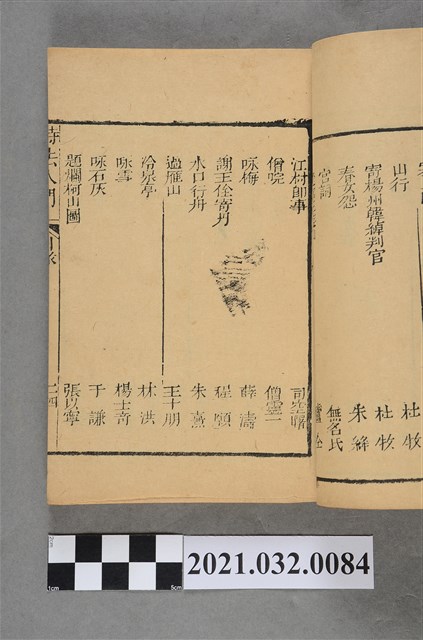 山行 杜牧
寄楊州韓綽判官 杜牧
春女怨 朱絳
宮詞 無名氏
江村即事 司空曙
僧院 僧靈一
咏梅 薛濤
謝王佺寄丹 程顥
水口行舟 朱熹
過雁山 王十朋
冷泉亭 林洪
咏雪 楊士奇
咏石灰 于謙
題爛柯山圖 張以寧
詩法入門 目錄 二四
2021.032.0084
1cm
5cm